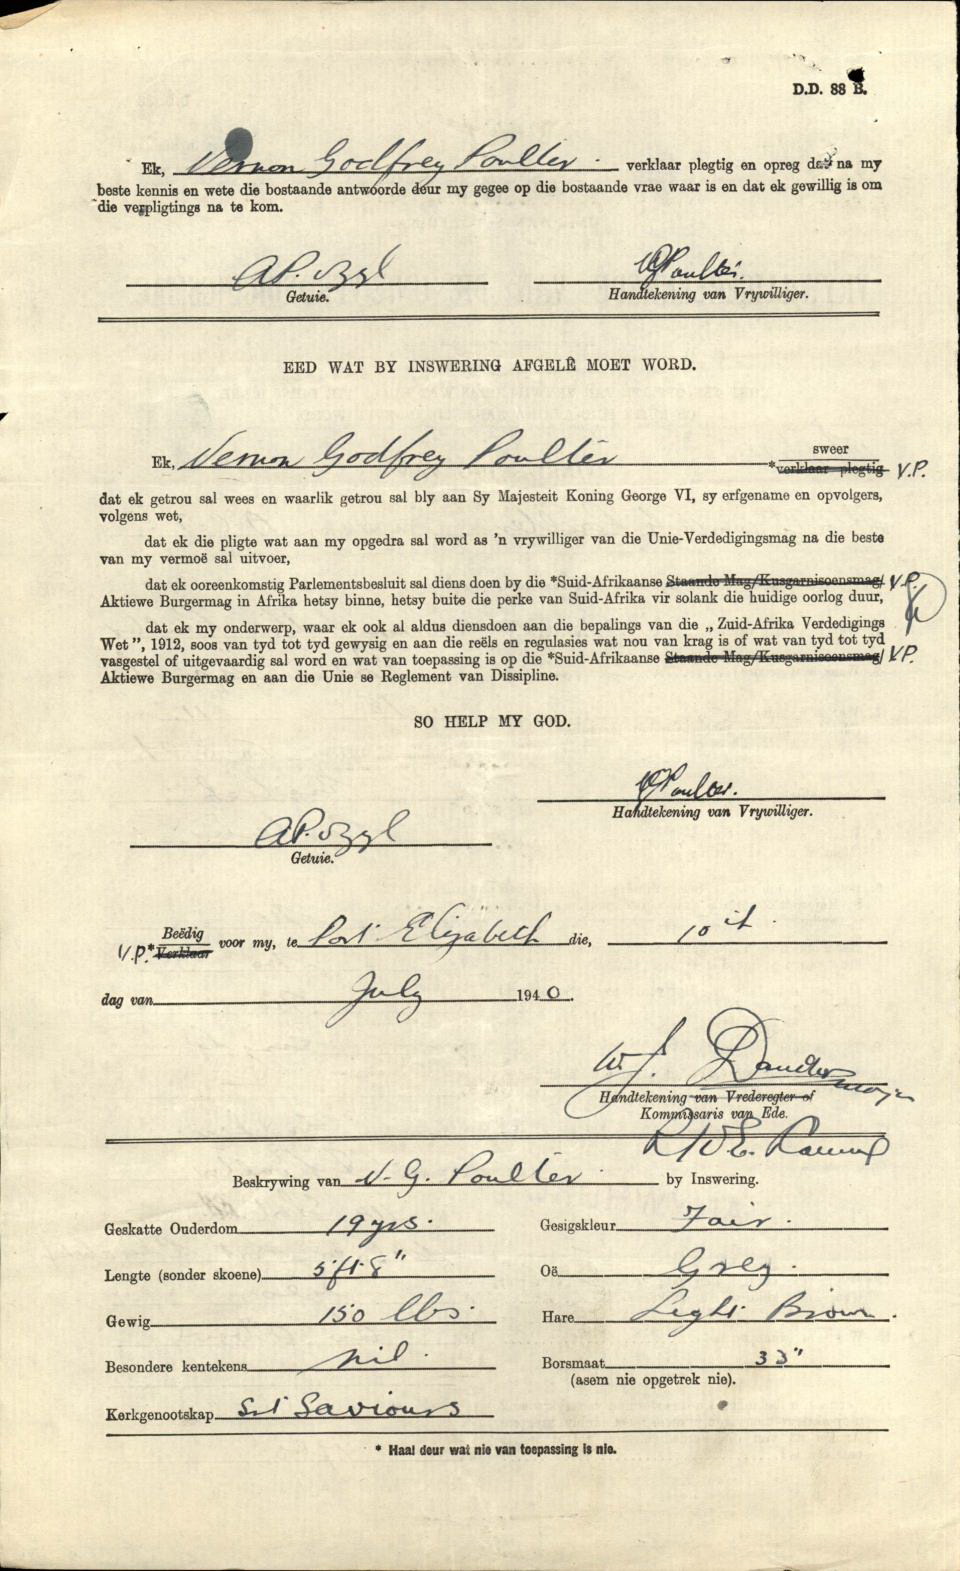 D.D. 88 B.
Ek, Vernon Godfrey Poulter verklaar plegtig en opreg dat na my
beste kennis en wete die bostaande antwoorde deur my gegee op die bostaande vrae waar is en dat ek gewillig is om
die verpligtings na te kom.
VGPoulter.
Getuie. Handtekening van Vrywilliger.
EED WAT BY INSWERING AFGELÊ MOET WORD.
sweer
Ek, Vernon Godfrey Poulter *verklaar plegtig V.P.
dat ek getrou sal wees en waarlik getrou sal bly aan Sy Majesteit Koning George VI, sy erfgename en opvolgers,
volgens wet,
dat ek die pligte wat aan my opgedra sal word as 'n vrywilliger van die Unie-Verdedigingsmag na die beste
van my vermoë sal uitvoer,
dat ek ooreenkomstig Parlementsbesluit sal diens doen by die *Suid-Afrikaanse Staande Mag/Kusgarnisoensmag/ V.P.
Aktiewe Burgermag in Afrika hetsy binne, hetsy buite die perke van Suid-Afrika vir solank die huidige oorlog duur,
dat ek my onderwerp, waar ek ook al aldus diensdoen aan die bepalings van die „ Zuid-Afrika Verdedigings
Wet ”, 1912, soos van tyd tot tyd gewysig en aan die reëls en regulasies wat nou van krag is of wat van tyd tot tyd
vasgestel of uitgevaardig sal word en wat van toepassing is op die *Suid-Afrikaanse Staande Mag/Kusgarnisoensmag/ V.P.
Aktiewe Burgermag en aan die Unie se Reglement van Dissipline.
SO HELP MY GOD.
VGPoulter.
Handtekening van Vrywilliger.
Getuie.
Beëdig
V.P. *Verklaar voor my, te Port Elizabeth die, 10th
dag van July 1940.
W. J.
Handtekening van Vrederegter of
Kommissaris van Ede.
Beskrywing van V. G. Poulter by Inswering.
Geskatte Ouderdom 19 yrs. Gesigskleur Fair.
Lengte (sonder skoene) 5 ft. 8" Oë Grey.
Gewig 150 lbs. Hare Light Brown.
Besondere kentekens nil. Borsmaat 33"
(asem nie opgetrek nie).
Kerkgenootskap Saviours
* Haal deur wat nie van toepassing is nie.